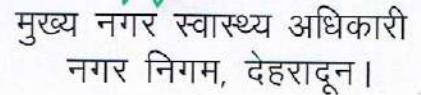 मुख्य नगर स्वास्थ्य अधिकारी
नगर निगम, देहरादून।